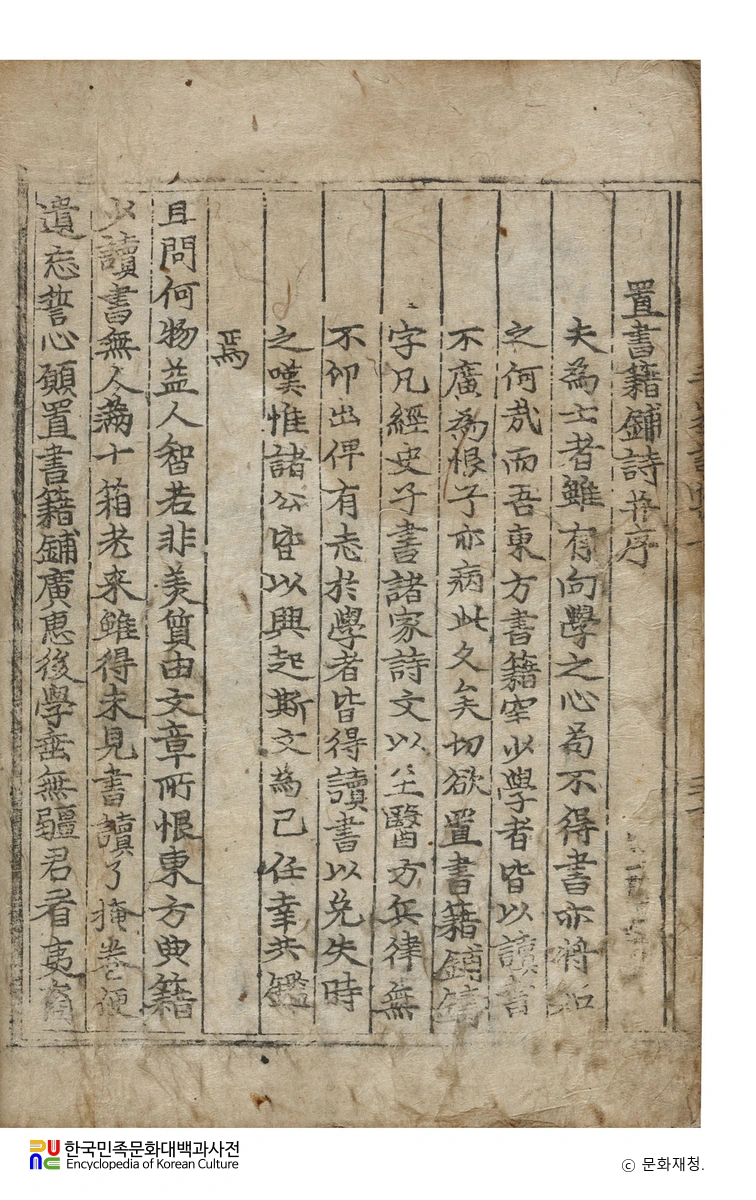 置書籍鋪詩并序
夫為士者雖有向學之心苟不得書亦將如
之何哉而吾東方書籍罕少學者皆以讀書
不廣為恨予亦病此久矣切欲置書籍鋪鑄
字凡經史子書諸家詩文以至醫方兵律無
不印出俾有志於學者皆得讀書以免失時
之嘆惟諸公皆以興起斯文為己任幸共鑑
焉
且問何物益人智若非美質由文章所恨東方典籍
少讀書無人滿十箱老來雖得未見書讀了掩卷便
遺忘誓心願置書籍鋪廣惠後學垂無疆君看夷裔
한국민족문화대백과사전
Encyclopedia of Korean Culture
© 문화재청.